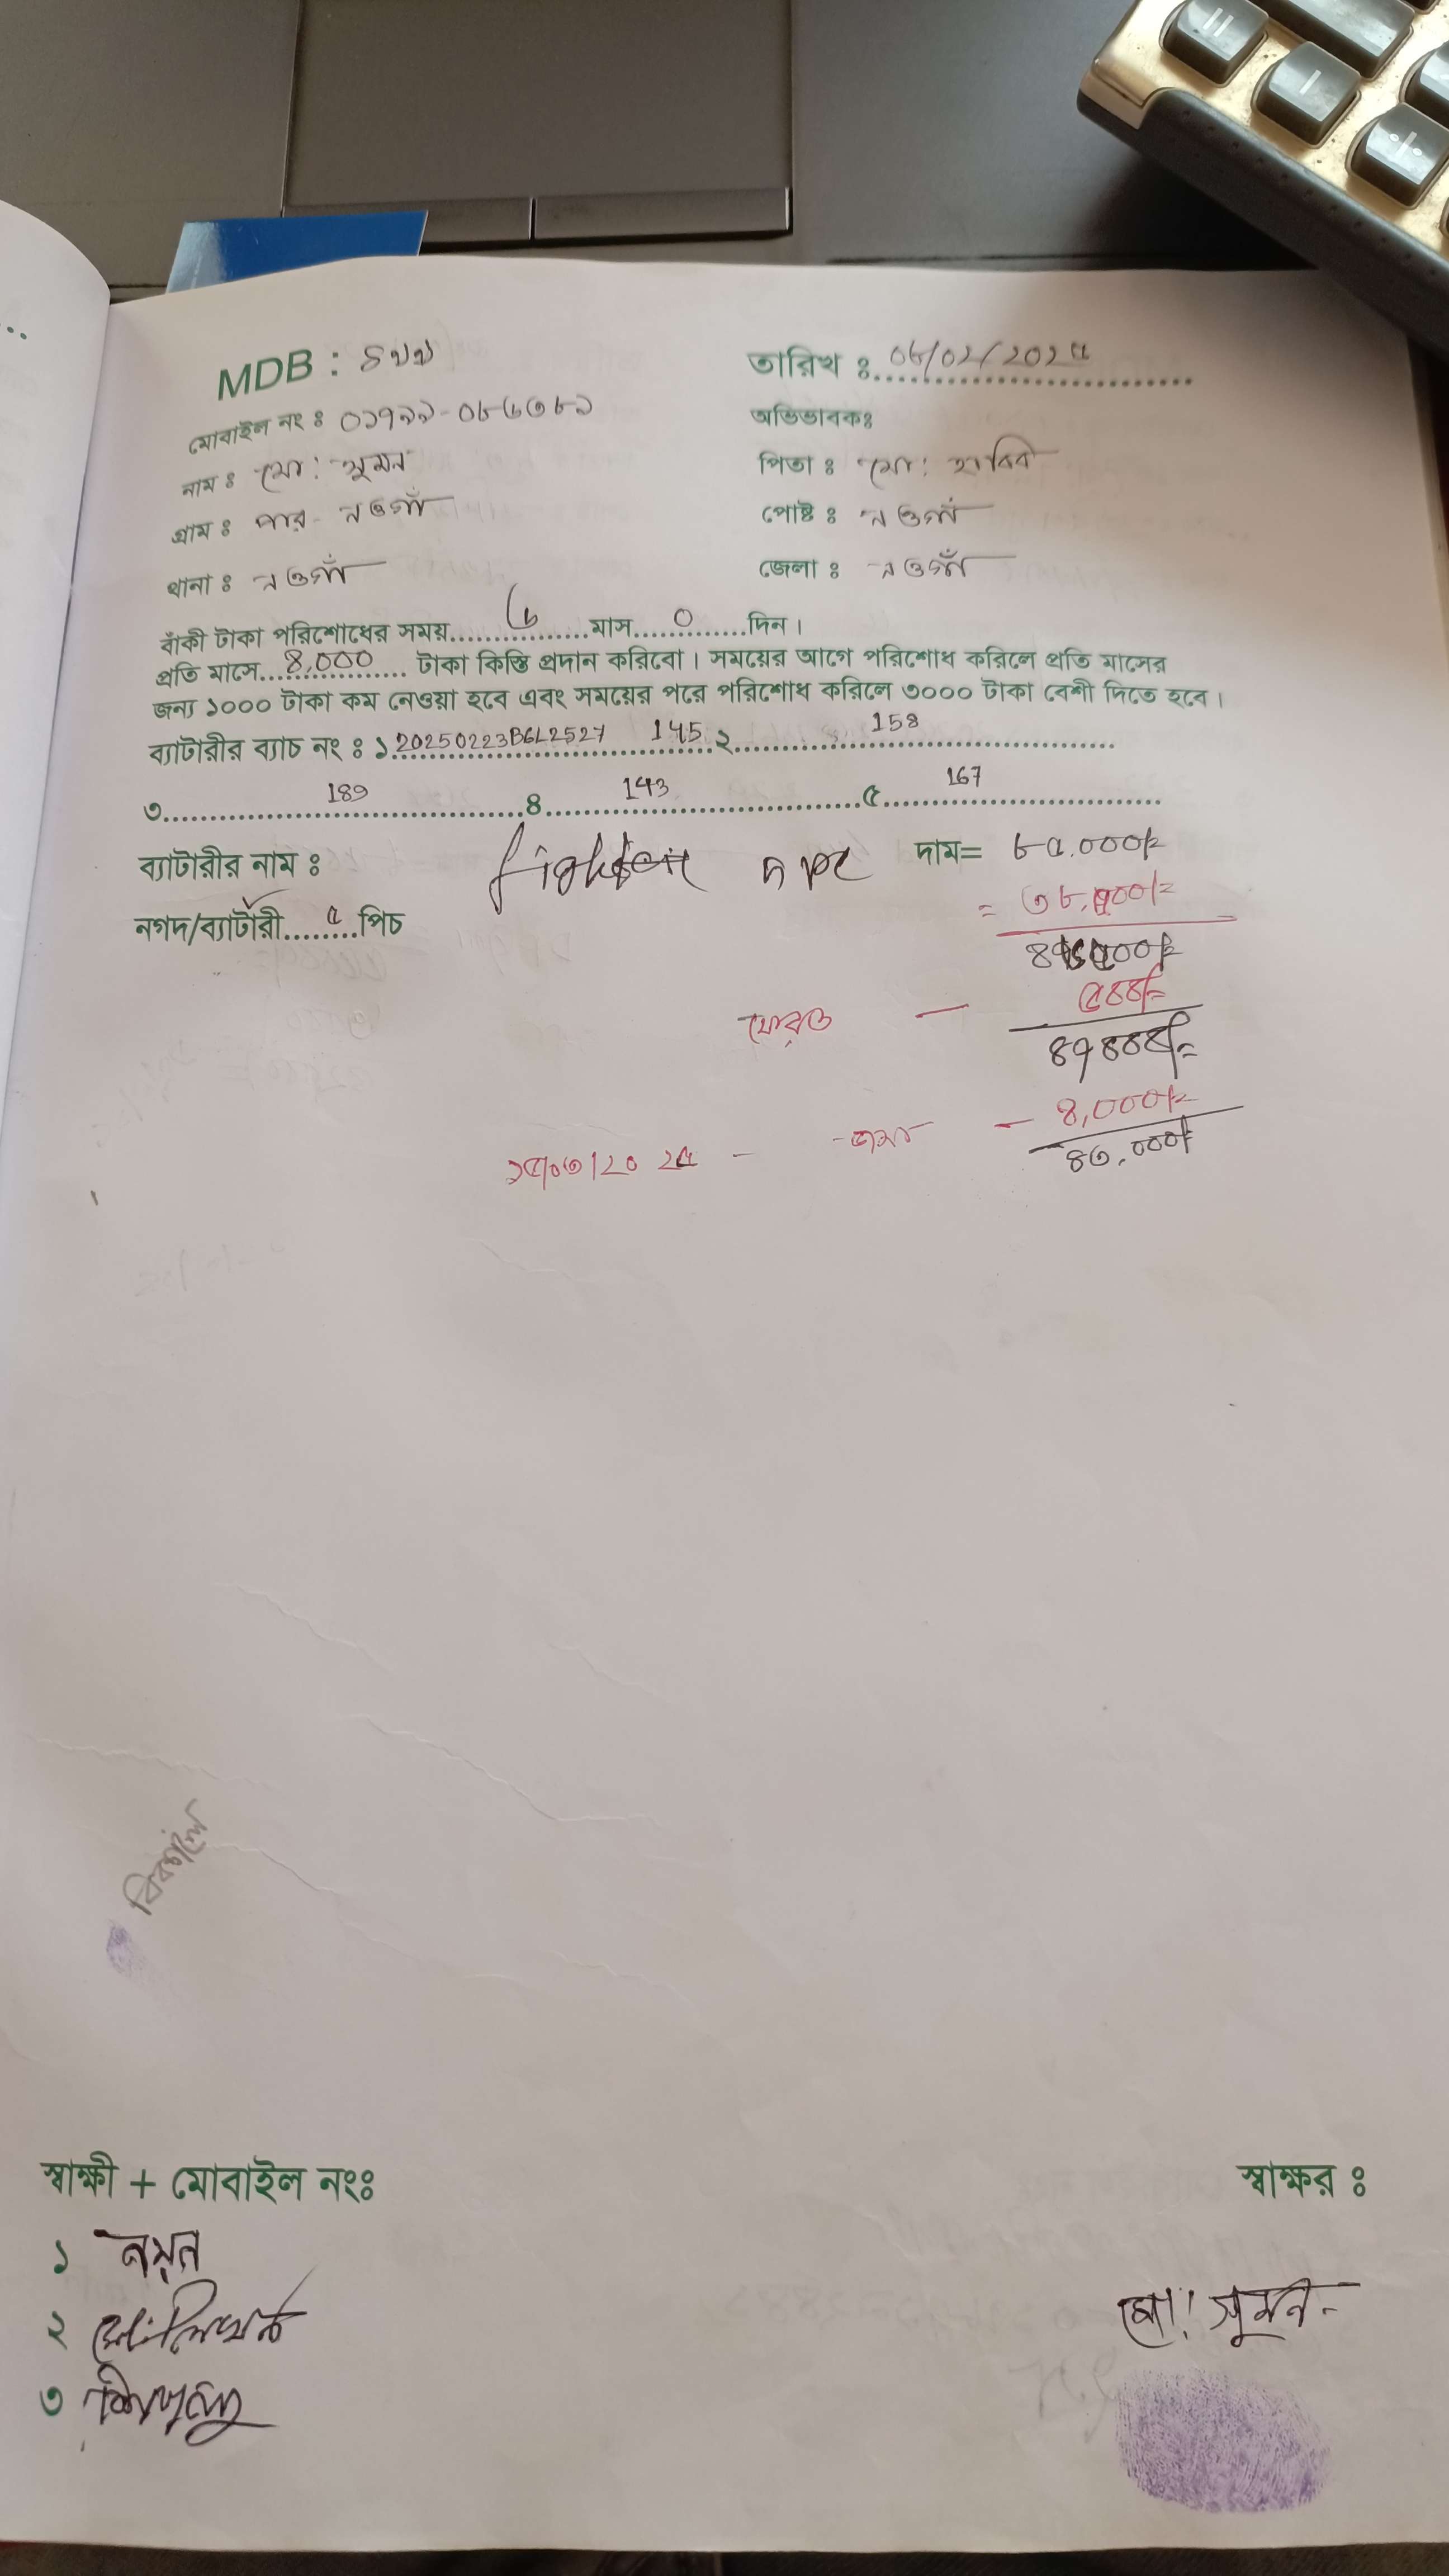 MDB : ৪৬৬ তারিখ ঃ 08/02/202৫
মোবাইল নং ঃ ০১৭৯৯-০৮৬৩৮১ অভিভাবকঃ
নাম ঃ মো: সুমন পিতা ঃ মো: হাবিব
গ্রাম ঃ পার-নওগাঁ পোষ্ট ঃ নওগাঁ
থানা ঃ নওগাঁ জেলা ঃ নওগাঁ
বাঁকী টাকা পরিশোধের সময়.......৬.......মাস.....০.....দিন।
প্রতি মাসে...৪,০০০... টাকা কিস্তি প্রদান করিবো। সময়ের আগে পরিশোধ করিলে প্রতি মাসের
জন্য ১০০০ টাকা কম নেওয়া হবে এবং সময়ের পরে পরিশোধ করিলে ৩০০০ টাকা বেশী দিতে হবে।
ব্যাটারীর ব্যাচ নং ঃ ১.20250223B6L2527 145.২.......158.......
৩.......189.......৪.......143.......৫.......167.......
ব্যাটারীর নাম ঃ fighter দাম= ৮৫.০০০/=
নগদ/ব্যাটারী....৫....পিচ = ৩৮,০০০/=
ফেরত — ৫৪৪/=
৪৭৪৪৪/=
১৫/০৩/২০২৫ - জমা - ৪,০০০/=
৪৩,০০০/=
স্বাক্ষী + মোবাইল নংঃ স্বাক্ষর ঃ
১ নয়ন
২
৩
মো: সুমন